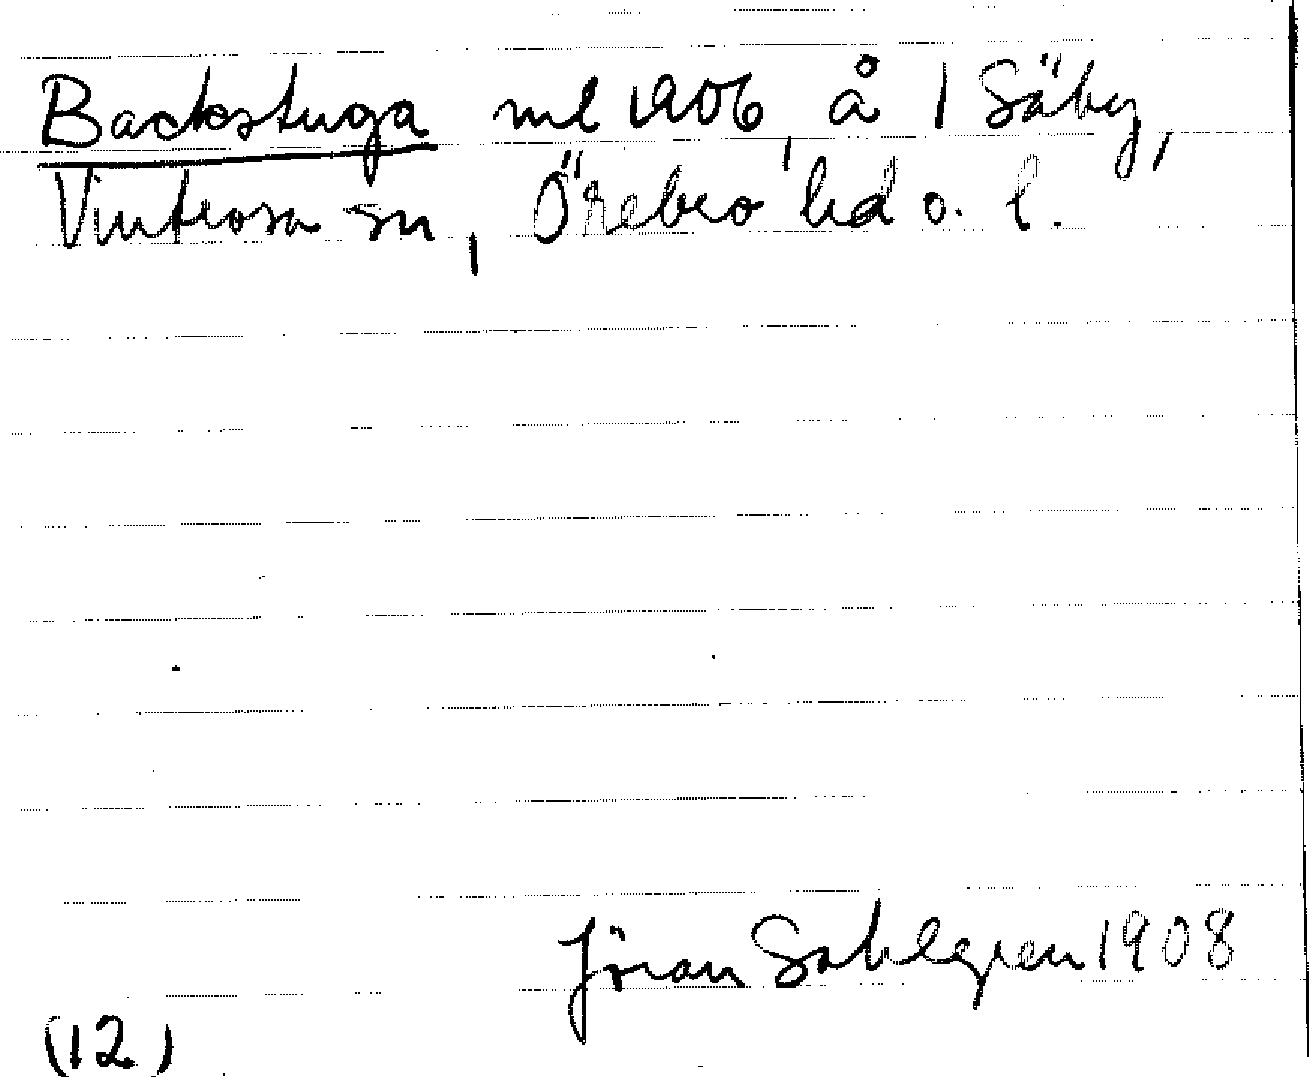 Backstuga ml 1906, å 1 Säby,
Vintrosa sn, Örebro hd o. l.
Jöran Sahlgren 1908
(12)